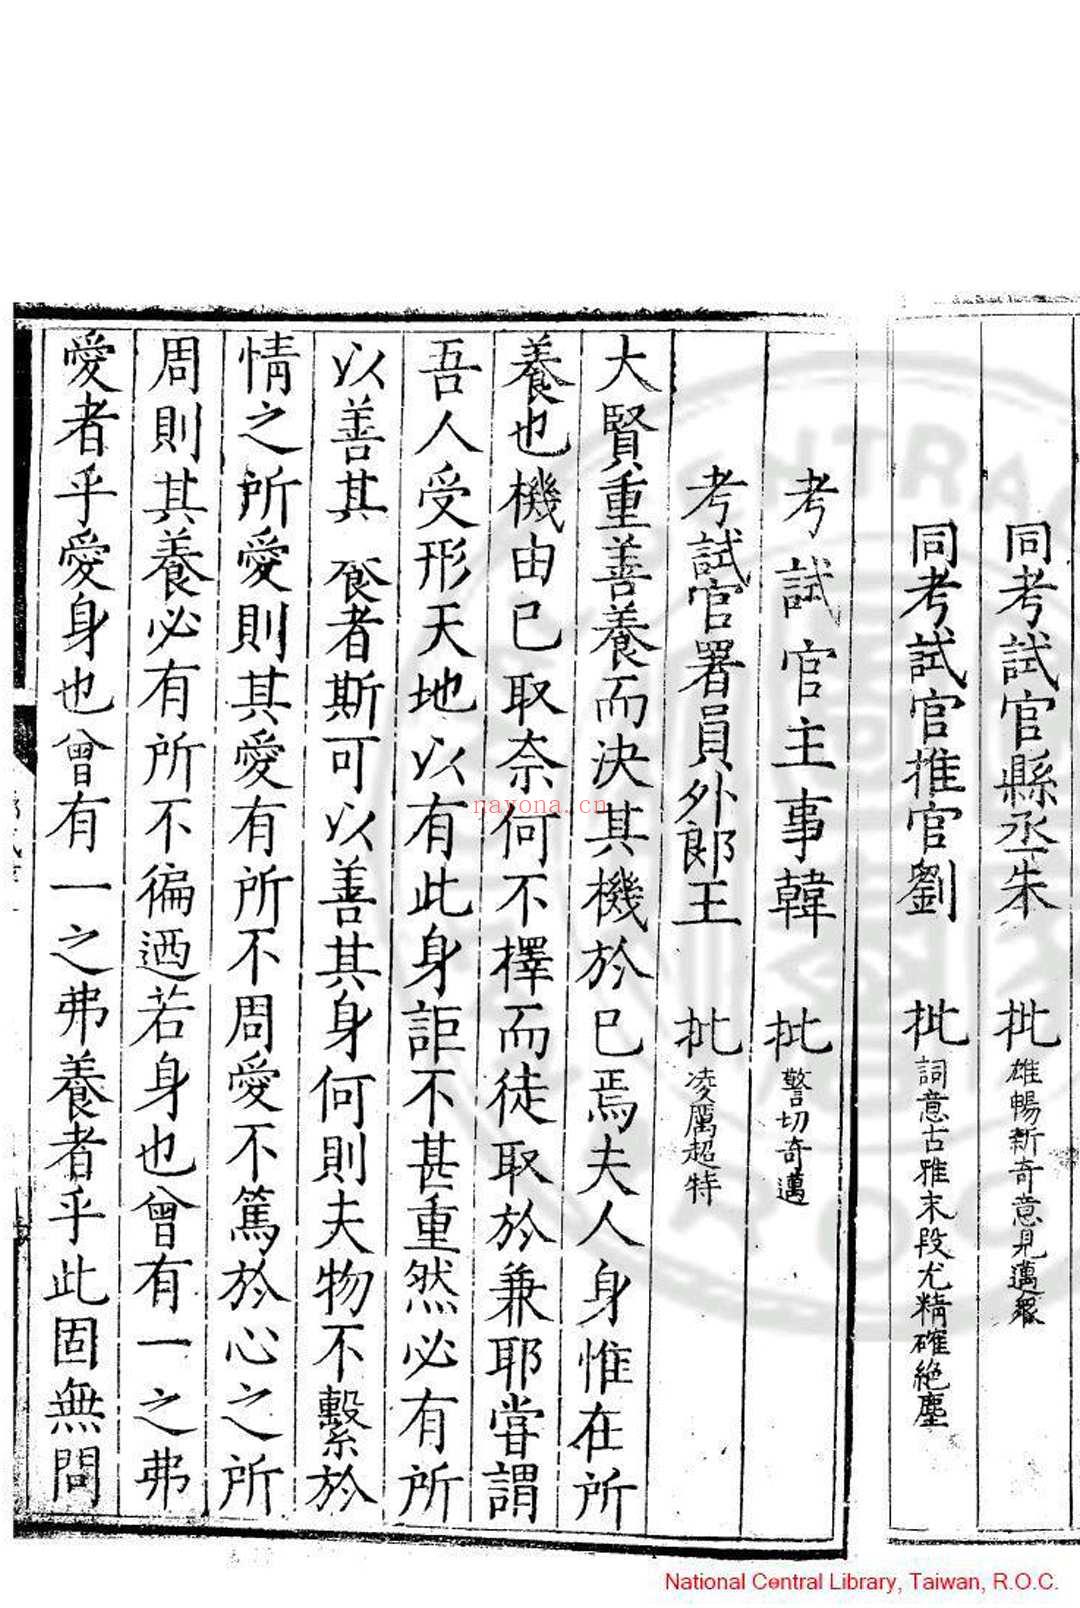 同考試官縣丞朱 批 雄暢新奇意見邁衆
同考試官推官劉 批 詞意古雅末段尤精確絶塵
考試官主事韓 批 警切奇邁
考試官署員外郎王 批 凌厲超特
大賢重善養而決其機於已焉夫人身惟在所
養也機由已取奈何不擇而徒取於兼耶甞謂
吾人受形天地以有此身詎不甚重然必有所
以善其養者斯可以善其身何則夫物不繫於
情之所愛則其愛有所不周愛不篤於心之所
周則其養必有所不徧廼若身也曾有一之弗
愛者乎愛身也曾有一之弗養者乎此固無問
nayona.cn
National Central Library, Taiwan, R.O.C.